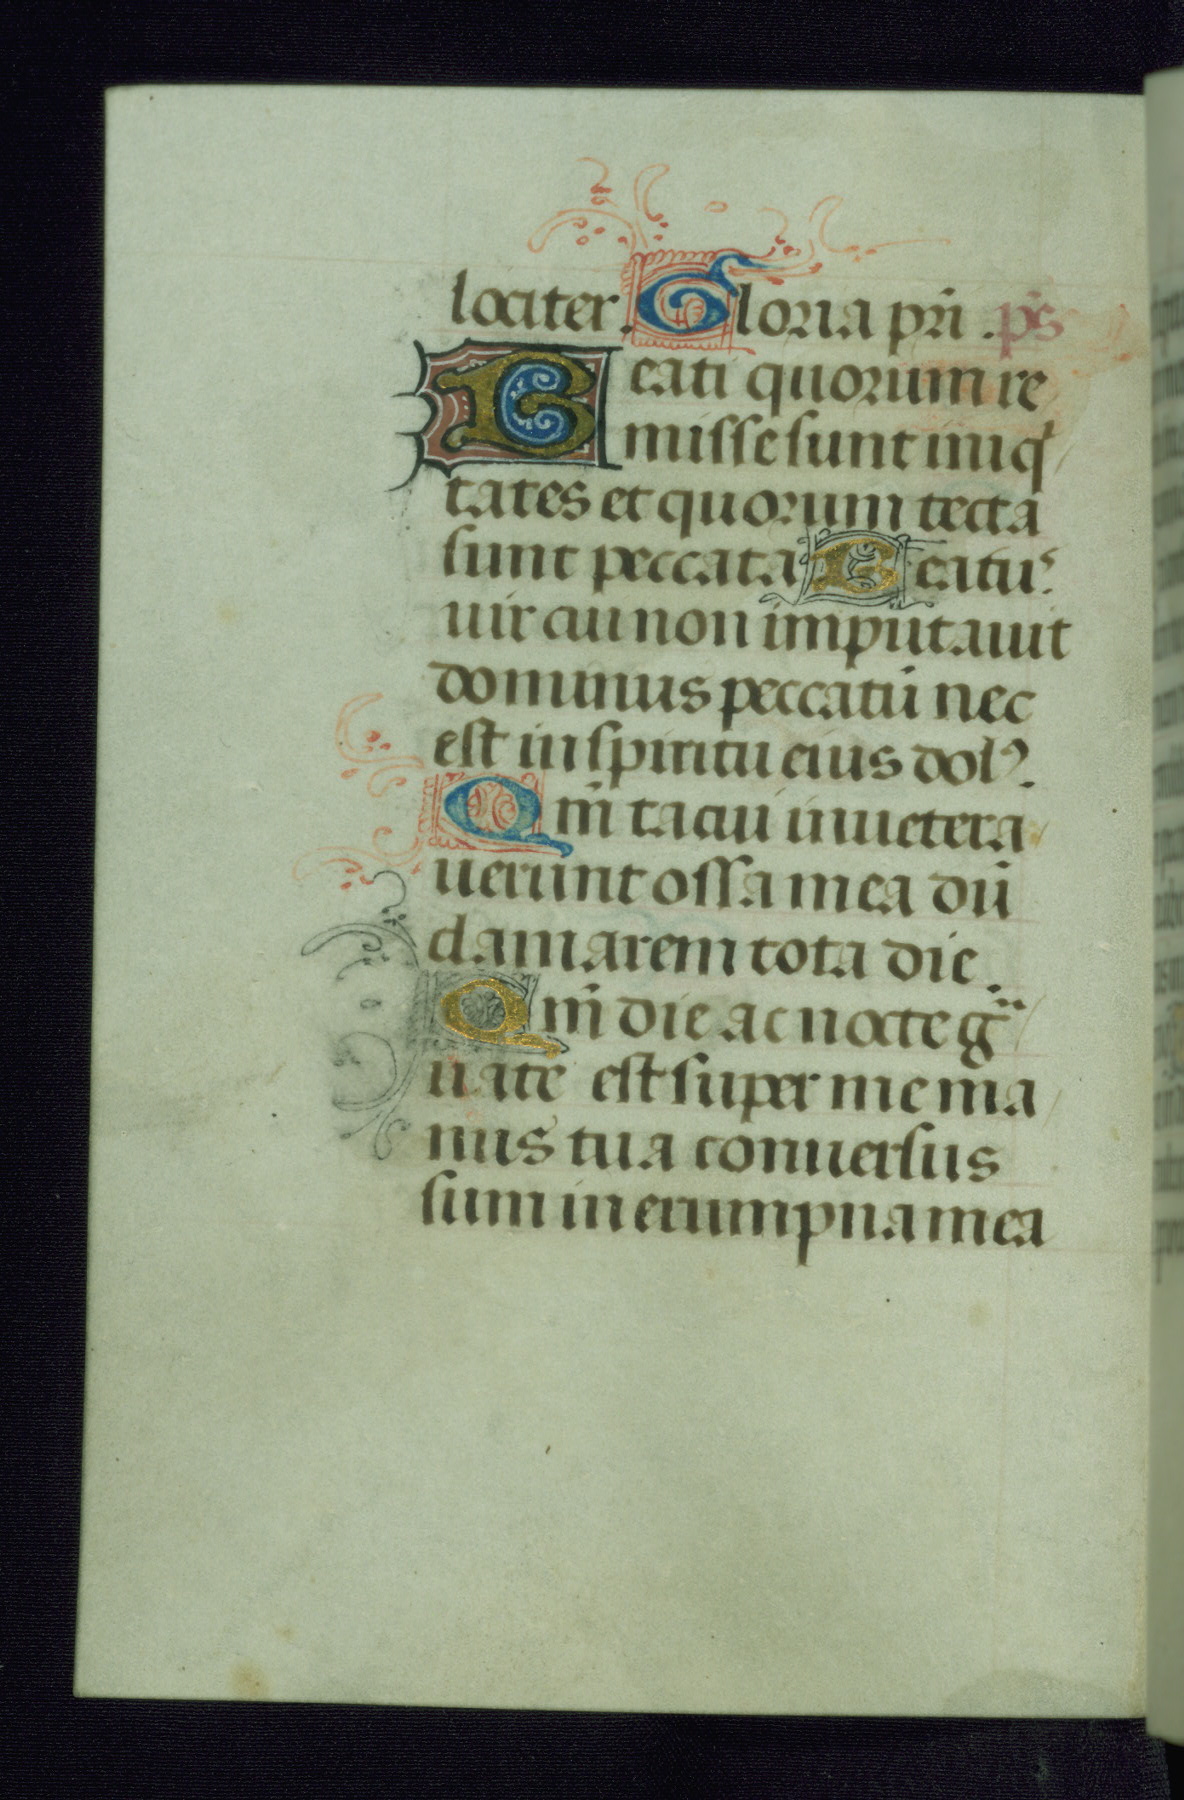 lociter. Gloria pr̄i. ps̄
Beati quorum re
misse sunt iniq̍
tates et quorum tecta
sunt peccata Beatuꝰ
uir cui non imputauit
dominus peccatū nec
est in spiritu eius dolꝰ.
Qm̄ tacui inuetera
uerunt ossa mea dū
clamarem tota die.
Qm̄ die ac nocte gͣ
uate est super me ma
nus tua conuersus
sum in erumpna mea